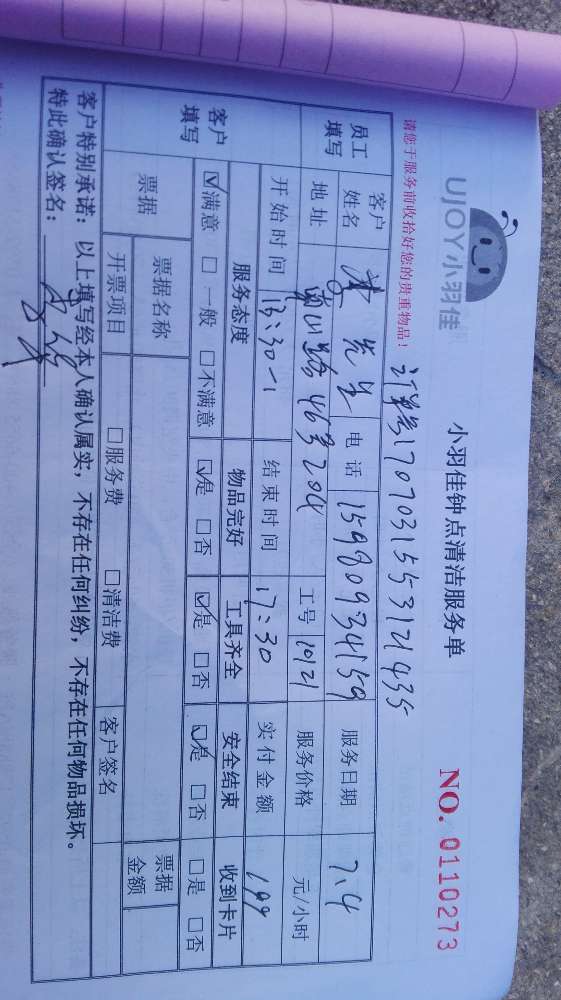 UJOY小羽佳
小羽佳钟点清洁服务单
NO. 0110273
请您于服务前收拾好您的贵重物品!
1707031553121435
员工填写 客户姓名 先生 电话 15980934159 服务日期 7.4
地址 46号204 工号 10121 服务价格 元/小时
开始时间 13:30 结束时间 17:30 实付金额 199
客户填写 服务态度 物品完好 工具齐全 安全结束 收到卡片
☑满意 □一般 □不满意 ☑是 □否 ☑是 □否 ☑是 □否 □是 □否
票据 票据名称 客户签名 票据金额
开票项目 □服务费 □清洁费
客户特别承诺:以上填写经本人确认属实,不存在任何纠纷,不存在任何物品损坏。
特此确认签名: